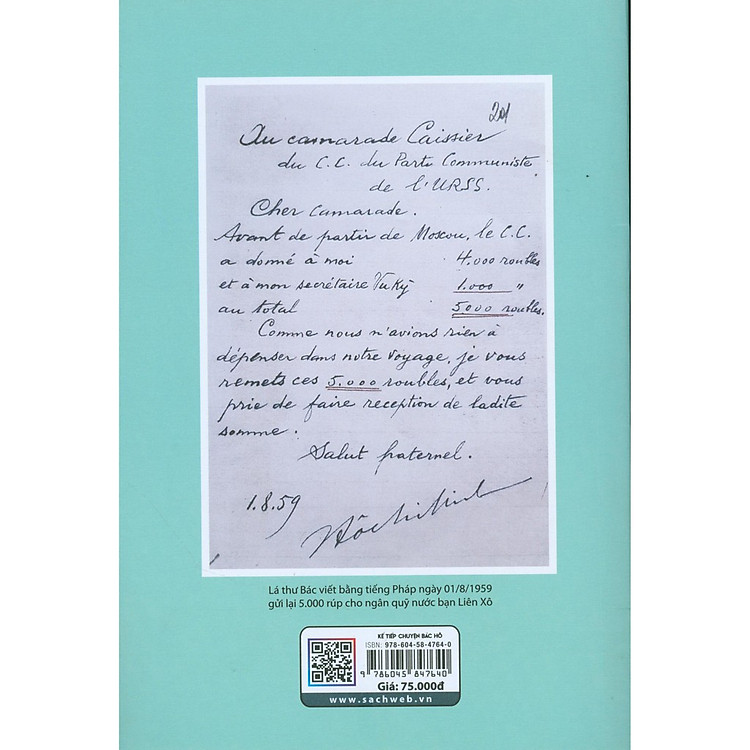 201
Au camarade Caissier
du C.C. du Parti Communiste
de l'URSS.
Cher Camarade.
Avant de partir de Moscou, le C.C.
a donné à moi 4.000 roubles
et à mon secrétaire Vu Kỳ 1.000 "
au total 5.000 roubles.
Comme nous n'avions rien à
dépenser dans notre voyage, je vous
remets ces 5.000 roubles, et vous
prie de faire reception de ladite
somme.
Salut fraternel.
1.8.59
Hồ Chí Minh
Lá thư Bác viết bằng tiếng Pháp ngày 01/8/1959
gửi lại 5.000 rúp cho ngân quỹ nước bạn Liên Xô
KỂ TIẾP CHUYỆN BÁC HỒ
ISBN: 978-604-58-4764-0
9 786045 847640
Giá: 75.000đ
www.sachweb.vn